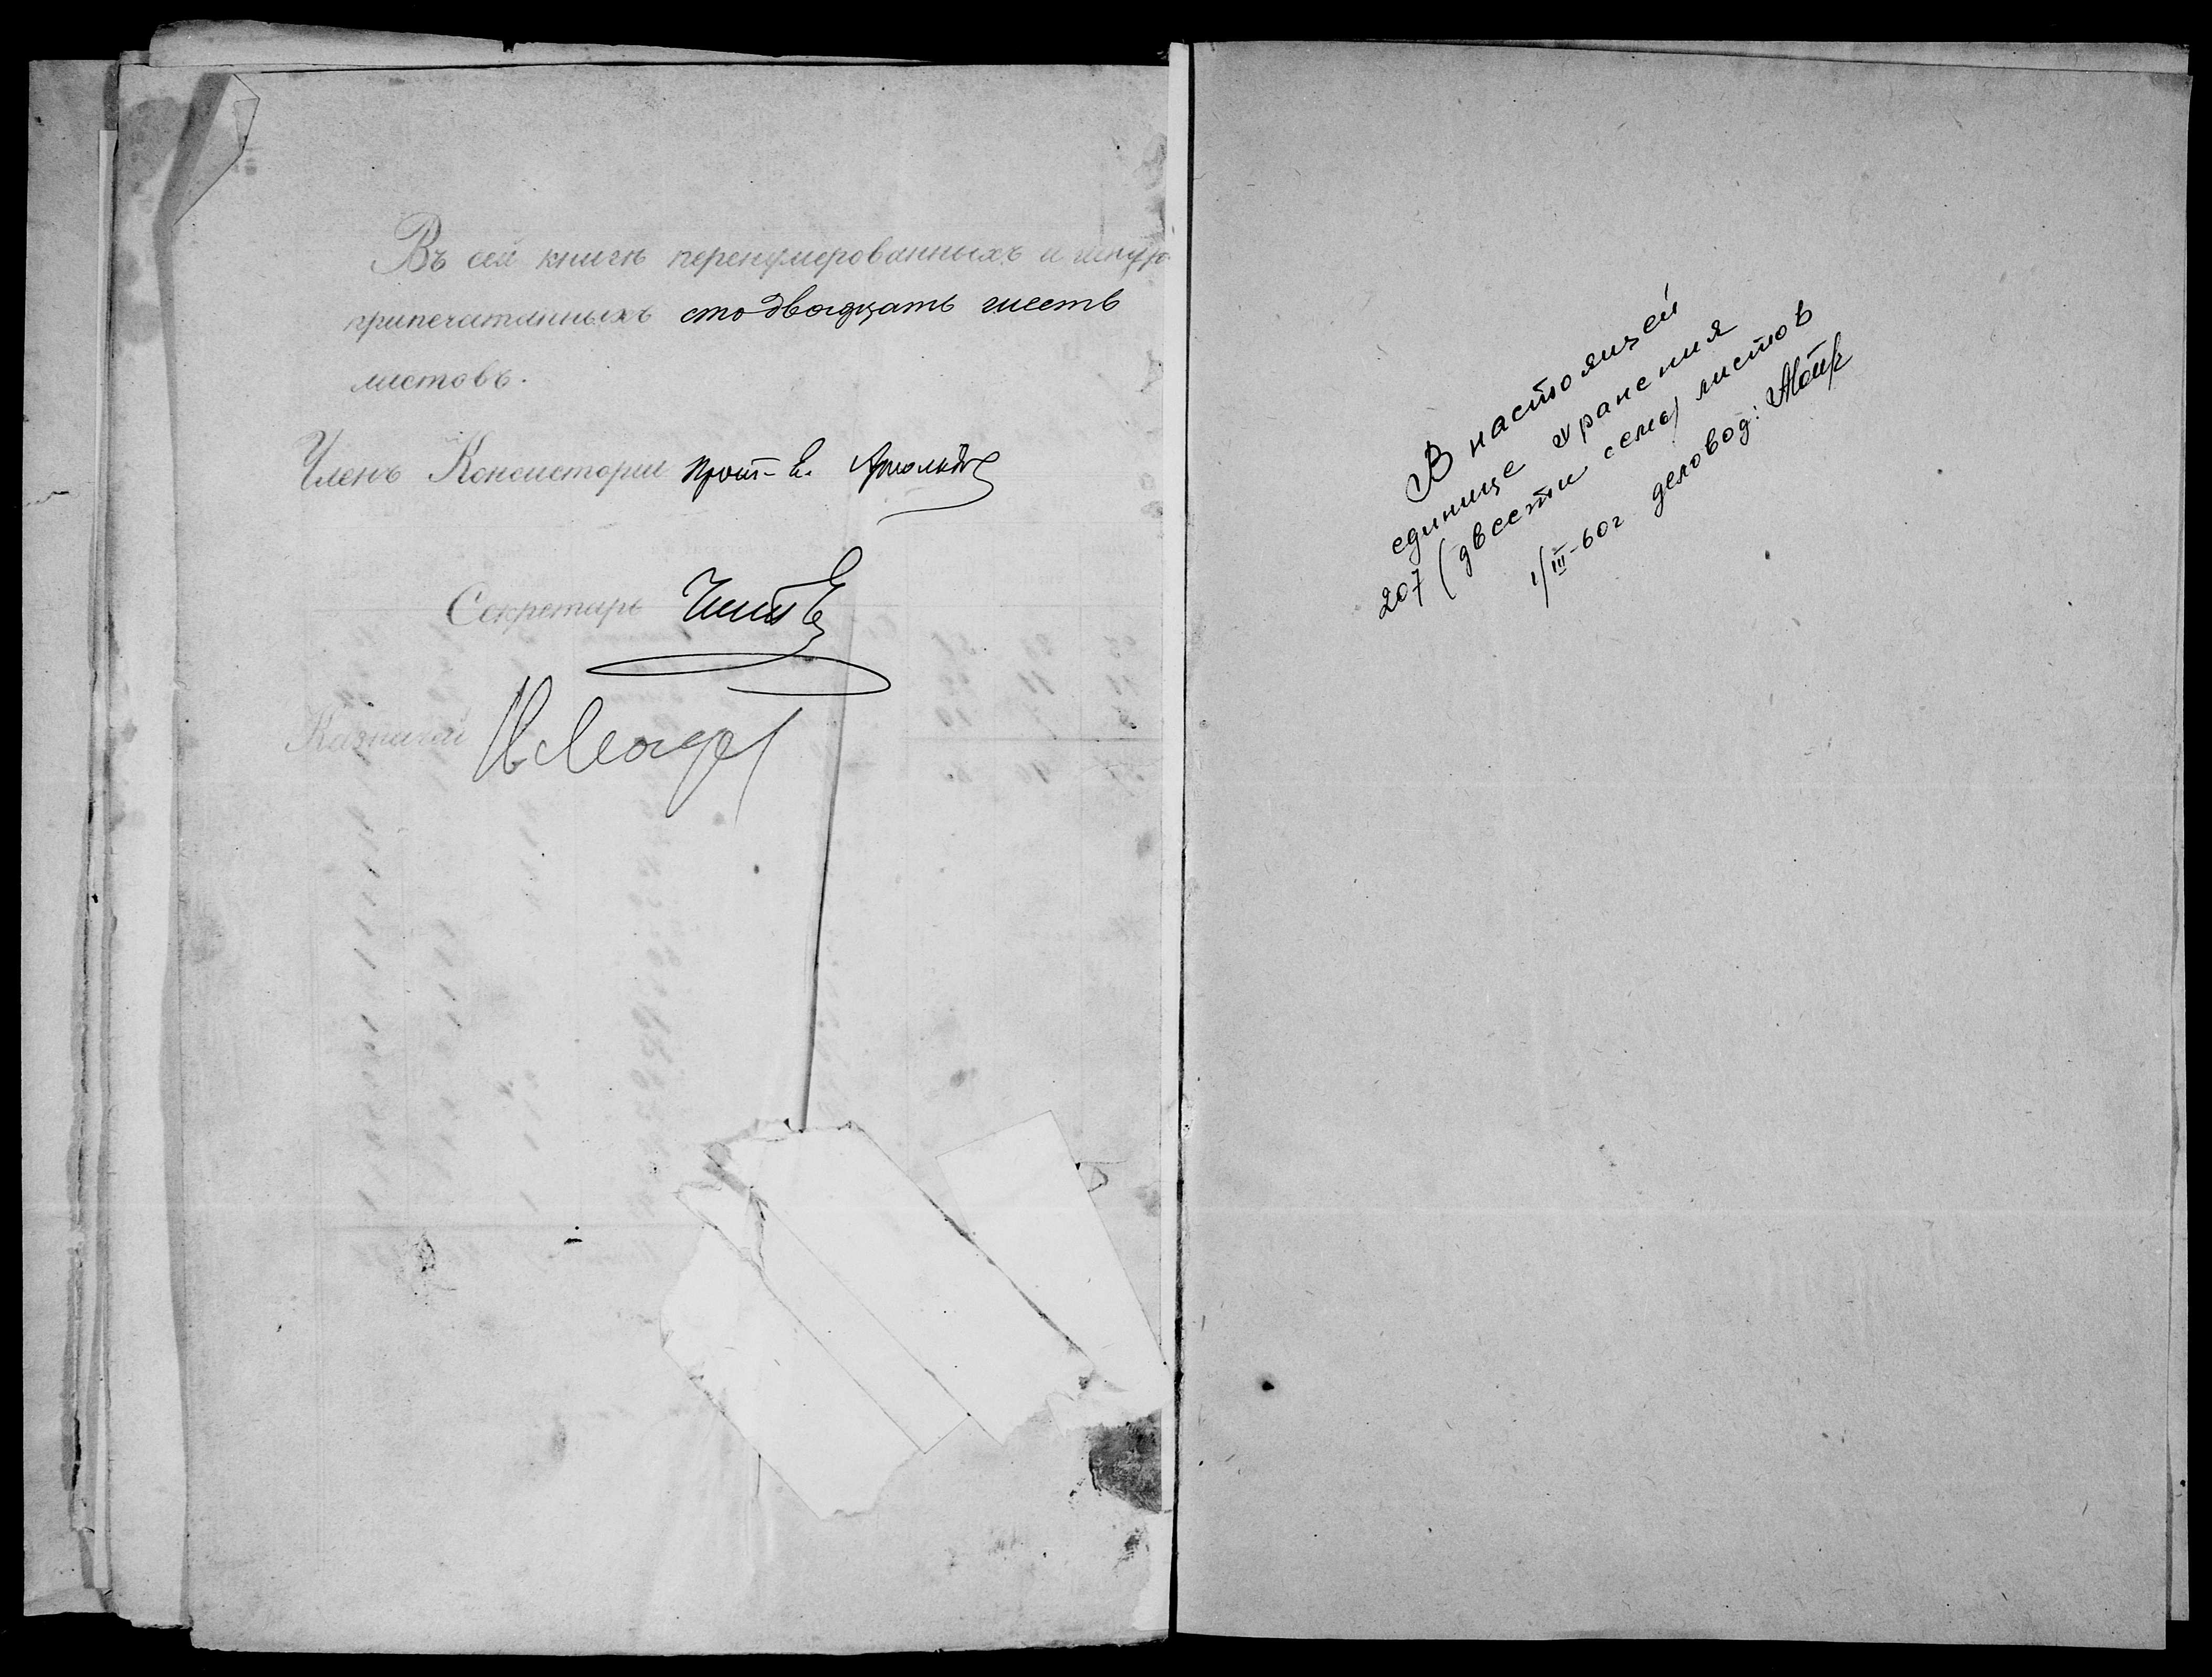 Въ сей книгѣ перенумерованныхъ и шнур
припечатанныхъ сто двадцать шесть
листовъ.
Членъ Консисторіи Прот.
Секретарь
Казначей
В настоящей
единице хранения
207 (двести семь) листов
1/III-60г деловод: